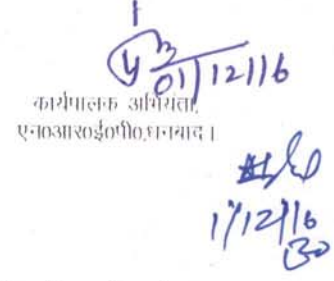 01/12/16
कार्यपालक अभियंता,
एन०आर०ई०पी०,धनबाद।
1/12/16